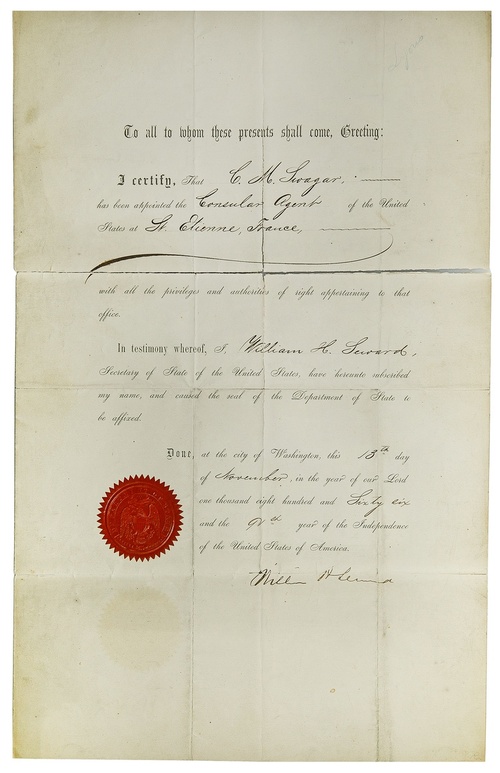 To all to whom these presents shall come, Greeting:
I certify, That C. M. Swagar,
has been appointed the Consular Agent of the United
States at St. Etienne, France,
with all the privileges and authorities of right appertaining to that
office.
In testimony whereof, I, William H. Seward,
Secretary of State of the United States, have hereunto subscribed
my name, and caused the seal of the Department of State to
be affixed.
Done, at the city of Washington, this 13th day
of November, in the year of our Lord
one thousand eight hundred and Sixty six
and the 91st year of the Independence
of the United States of America.
William H Seward